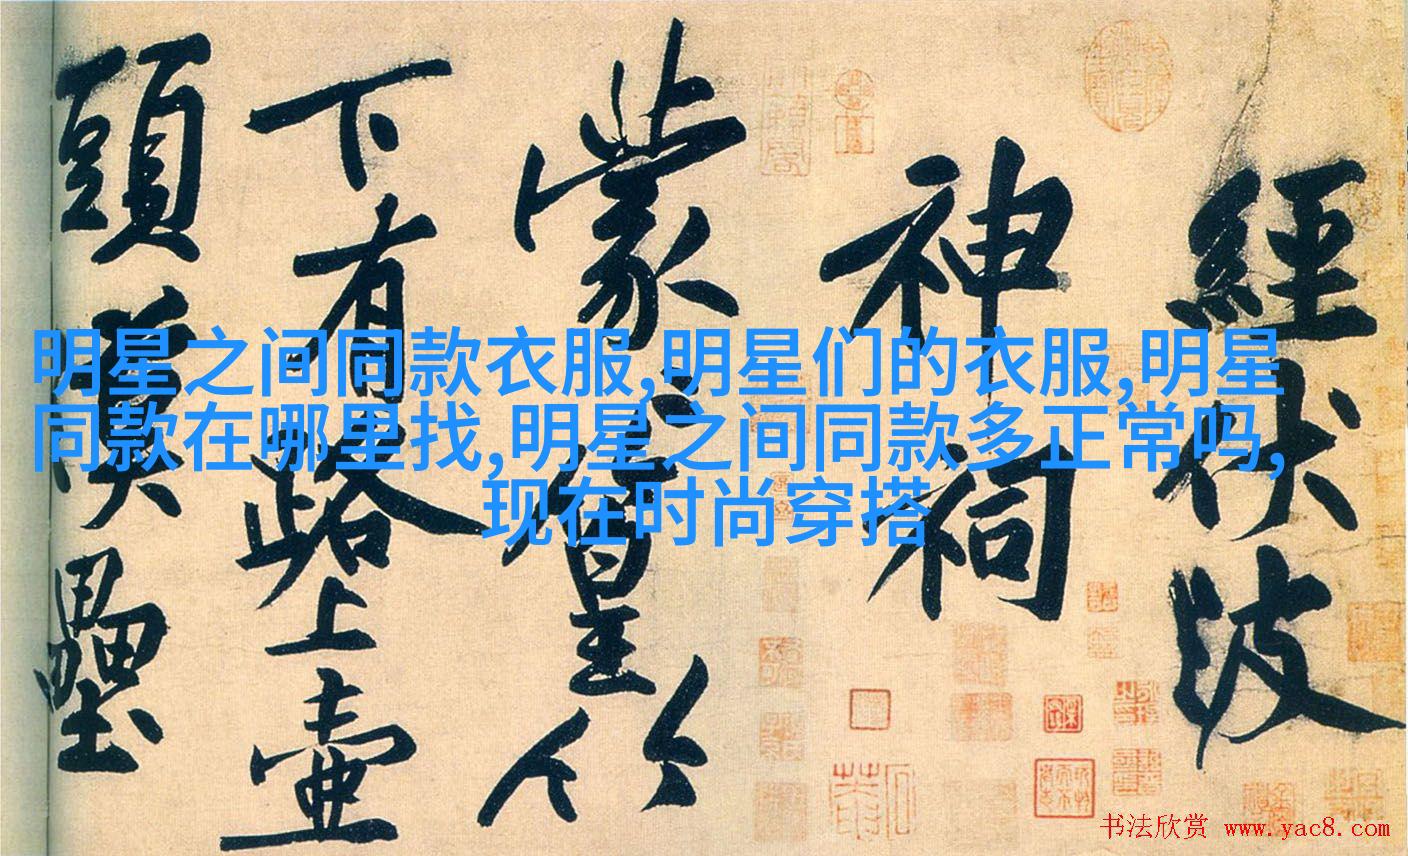 明星之间同款衣服,明星们的衣服,明星
同款在哪里找,明星之间同款多正常吗,
现在时尚穿搭
經伏波
神祠
蒙篁竹
下有路上壺
頭漢壘
书法欣赏 www.yac8.com